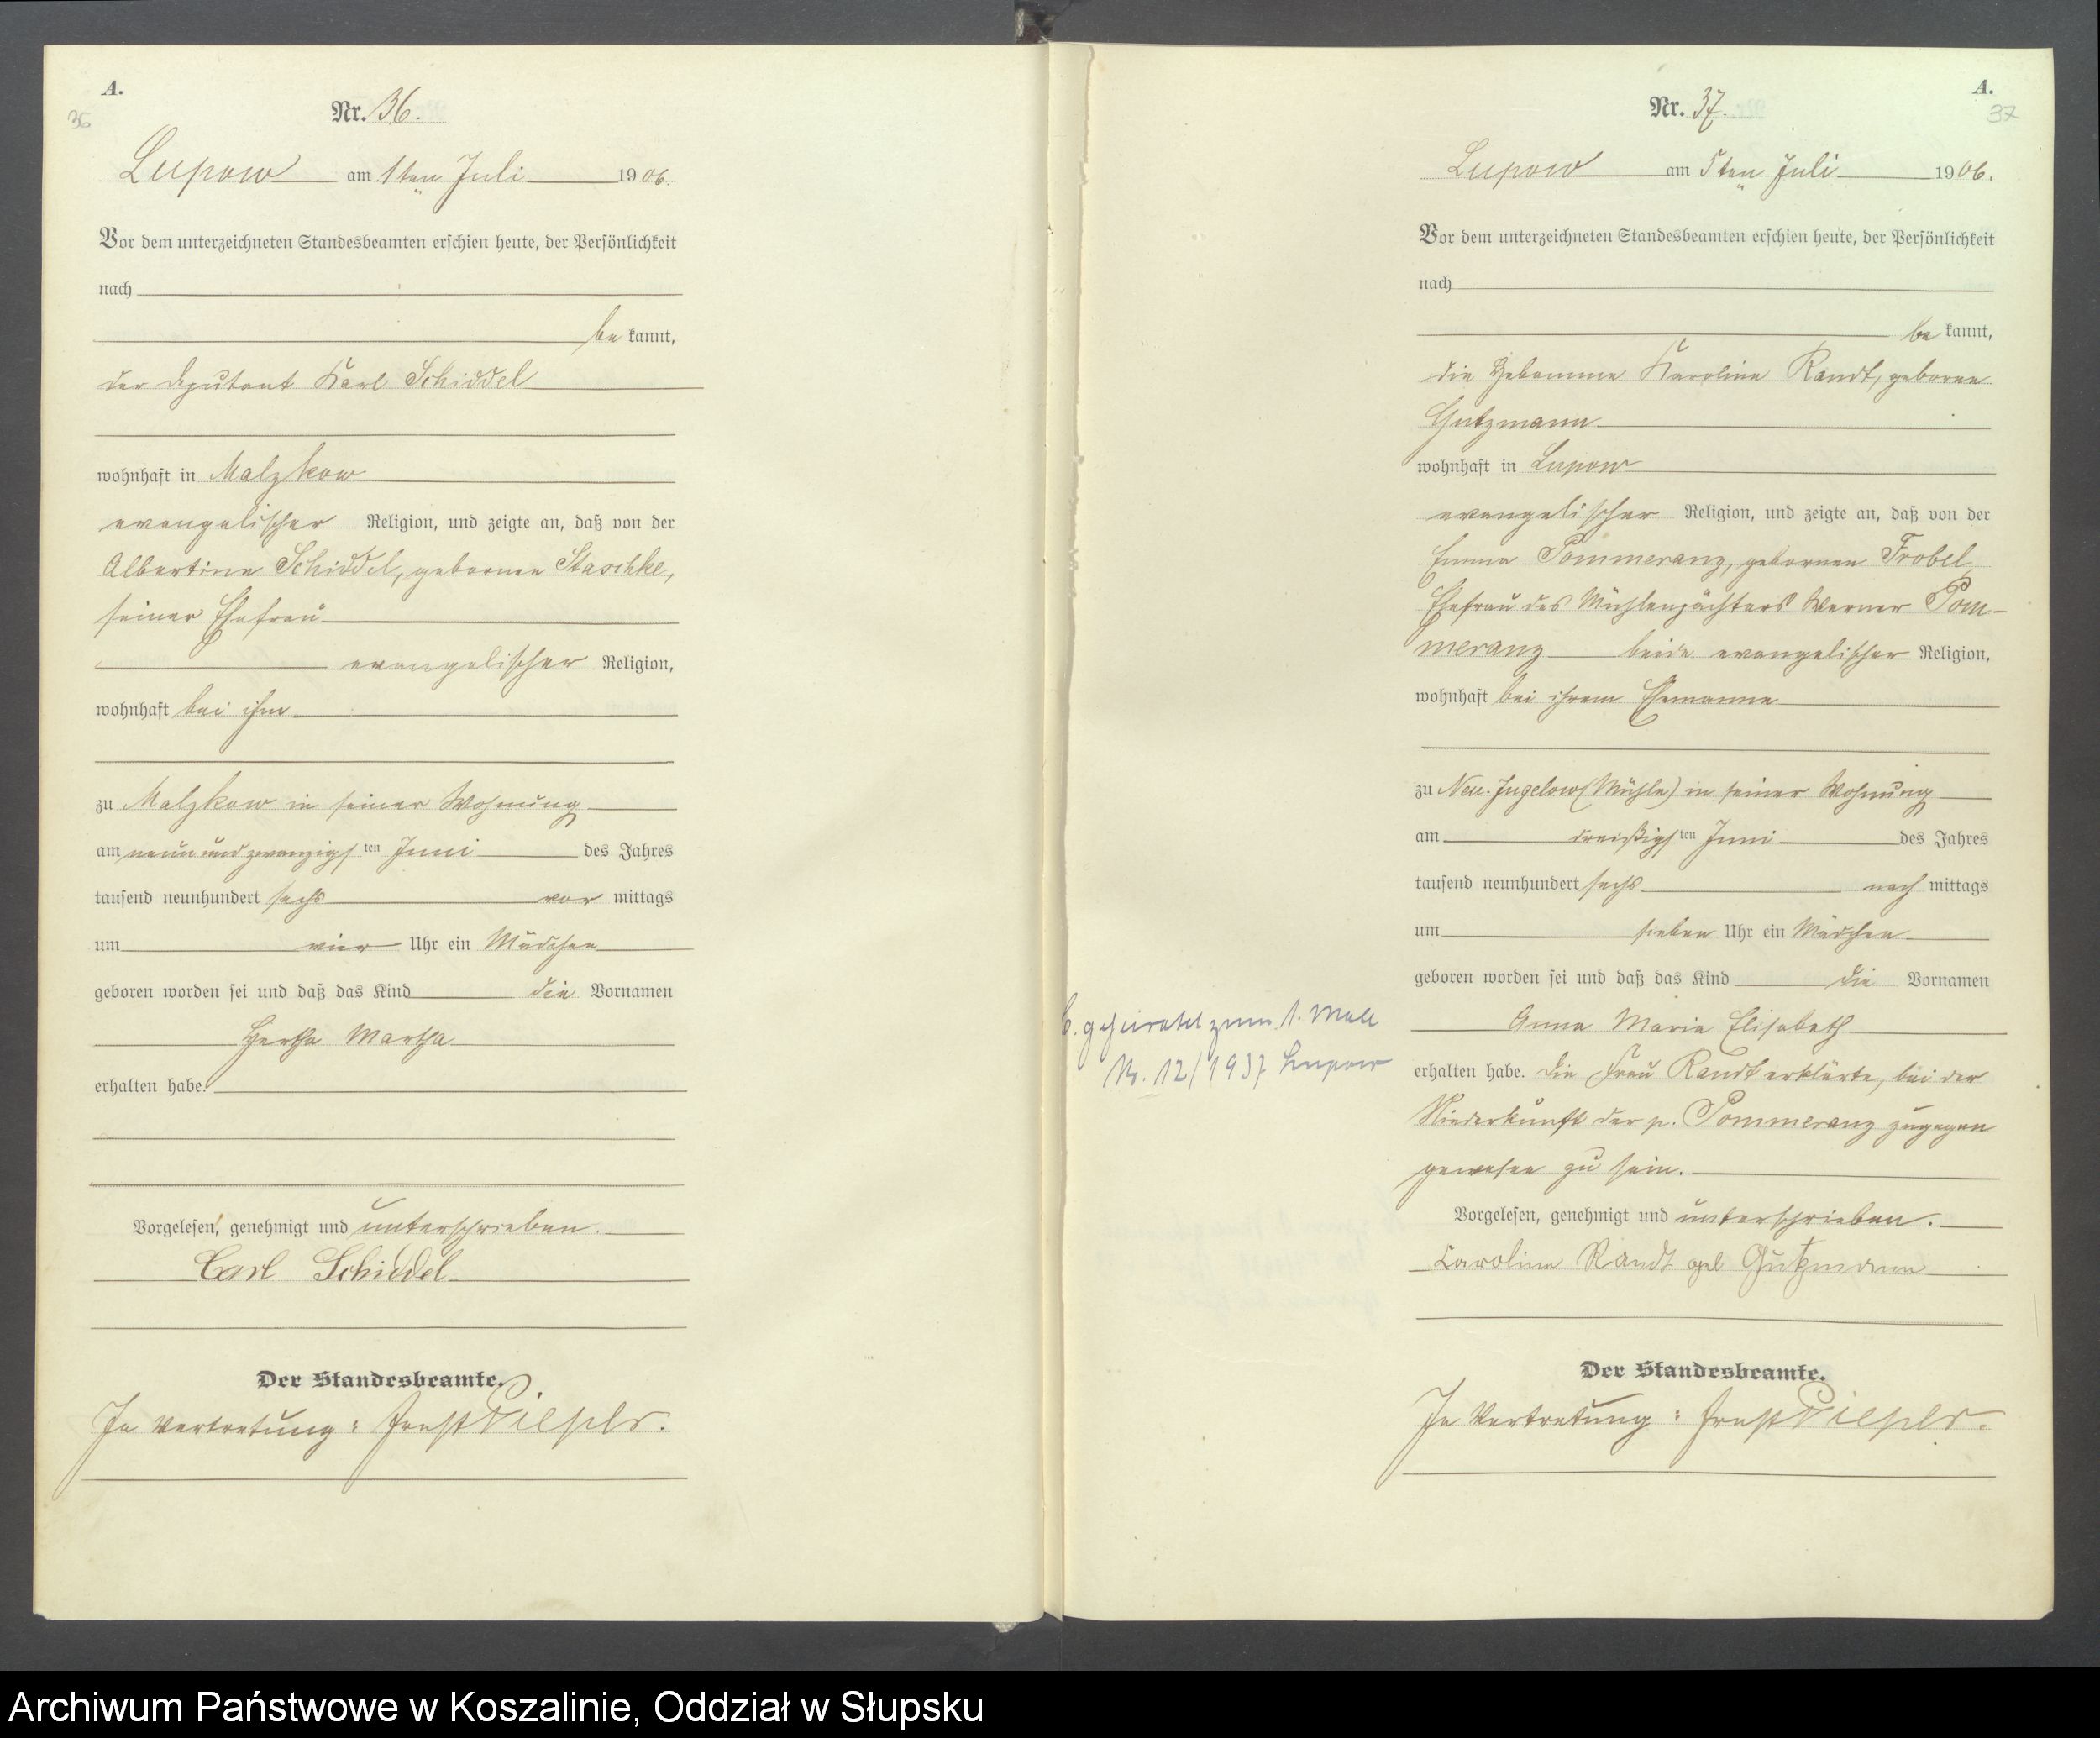 A.
36
Nr. 36.
Lupow am 1ten Juli 1906.
Vor dem unterzeichneten Standesbeamten erschien heute, der Persönlichkeit
nach
be kannt,
der Deputant Karl Schiddel
wohnhaft in Malzkow
evangelischer Religion, und zeigte an, daß von der
Albertine Schiddel, gebornen Staschke,
seiner Ehefrau
evangelischer Religion,
wohnhaft bei ihm
zu Malzkow in seiner Wohnung
am neun und zwanzigsten Juni des Jahres
tausend neunhundert sechs vor mittags
um vier Uhr ein Mädchen
geboren worden sei und daß das Kind die Vornamen
Hertha Martha
erhalten habe.
Vorgelesen, genehmigt und unterschrieben.
Carl Schiddel
Der Standesbeamte.
In Vertretung: Ernst
A.
37
Nr. 37.
Lupow am 5ten Juli 1906.
Vor dem unterzeichneten Standesbeamten erschien heute, der Persönlichkeit
nach
be kannt,
die Hebamme Karoline Randt, geborne
Gutzmann
wohnhaft in Lupow
evangelischer Religion, und zeigte an, daß von der
Emma Pommeranz, gebornen Frobel,
Ehefrau des Mühlenpächters Werner Pom-
meranz beide evangelischer Religion,
wohnhaft bei ihrem Ehemanne
zu Neu-Jugelow (Mühle) in seiner Wohnung
am dreißigsten Juni des Jahres
tausend neunhundert sechs nach mittags
um sieben Uhr ein Mädchen
geboren worden sei und daß das Kind die Vornamen
Anna Maria Elisabeth
erhalten habe. Die Frau Randt erklärte, bei der
Niederkunft der p. Pommeranz zugegen
gewesen zu sein.
Vorgelesen, genehmigt und unterschrieben.
Karoline Randt geb Gutzmann
Der Standesbeamte.
In Vertretung: Ernst
geheiratet zum 1. Male
Nr. 12/1937 Lupow
Archiwum Państwowe w Koszalinie, Oddział w Słupsku